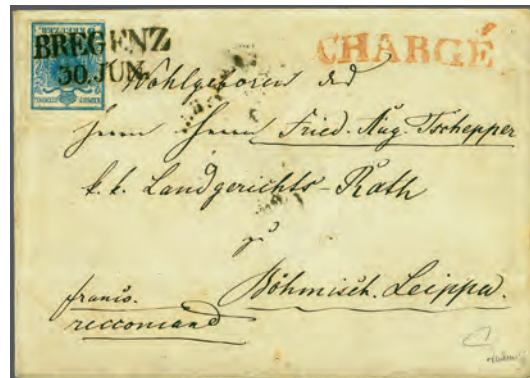 BREGENZ
30. JUN.
CHARGÉ
Wohlgeboren des
Herrn Herrn Fried. Aug. Tschepper
k. k. Landgerichts-Rath
zu
Böhmisch. Leippa.
franco.
reccomand